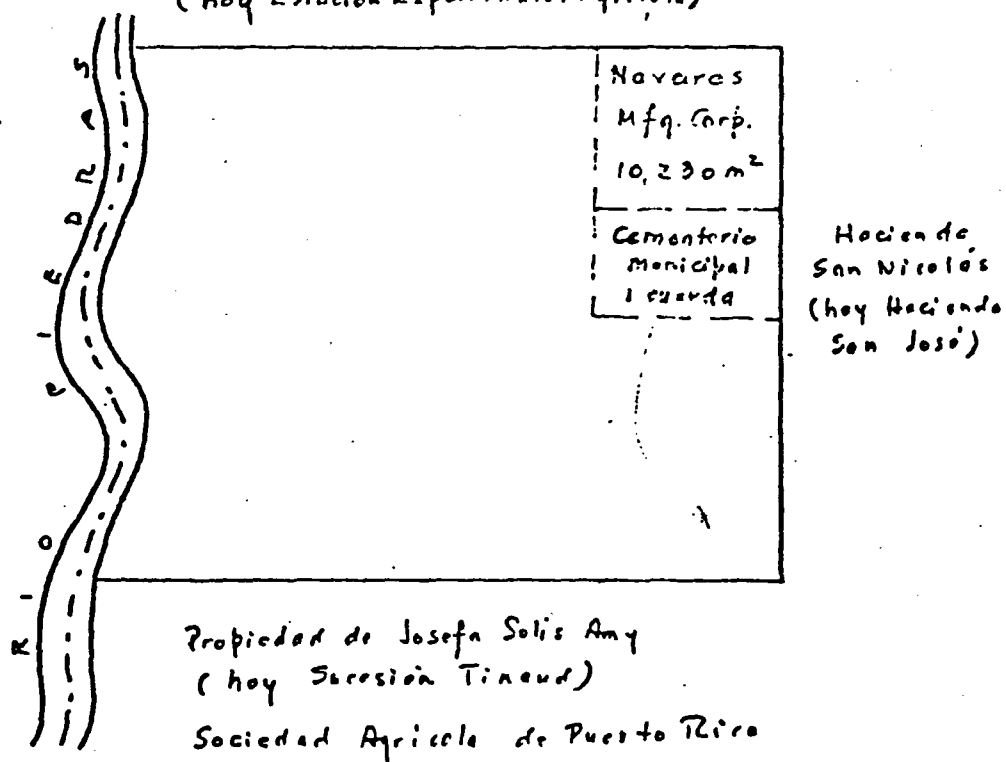 (hoy Estación Experimental Agrícola)
Navares
Mfg. Corp.
10,230 m²
Cementerio
Municipal
1 cuerda
Hacienda
San Nicolás
(hoy Hacienda
San José)
RIO PIEDRAS
Propiedad de Josefa Solis Amy
(hoy Sucesión Tinaud)
Sociedad Agricola de Puerto Rico